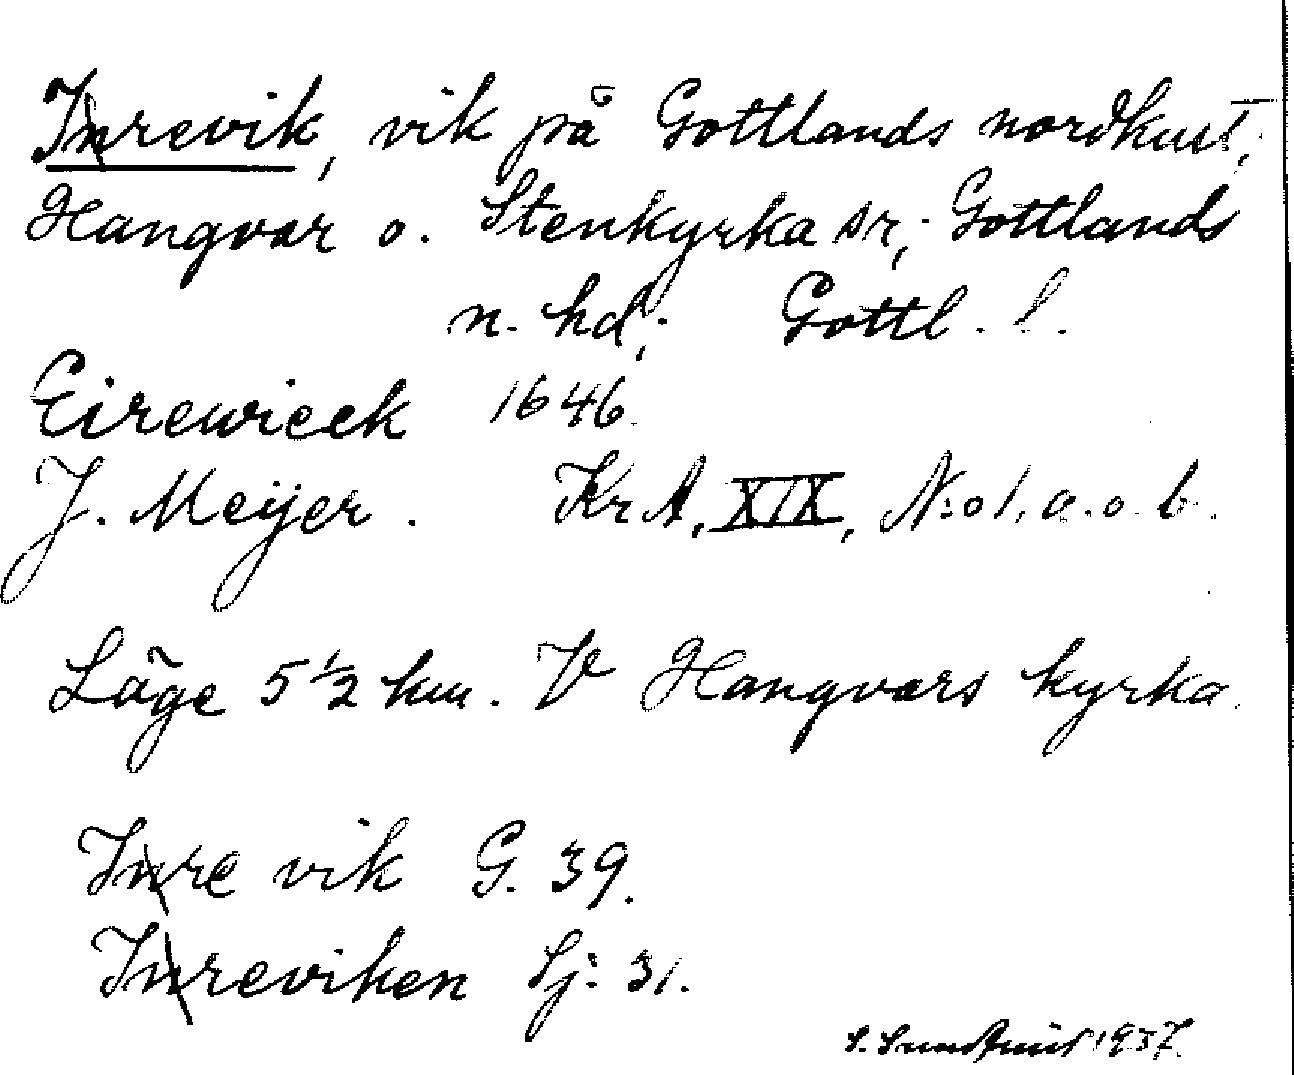 Inrevik, vik på Gottlands nordkust,
Hangvar o. Stenkyrka sr, Gottlands
n. hd, Gottl. l.
Eirewieek 1646.
J. Meijer. KrA, XIX, N:o 1. a. o. b.
Läge 5 1/2 km. V Hangvars kyrka.
Inre vik G. 39.
Inreviken Sj: 31.
S. 1937.